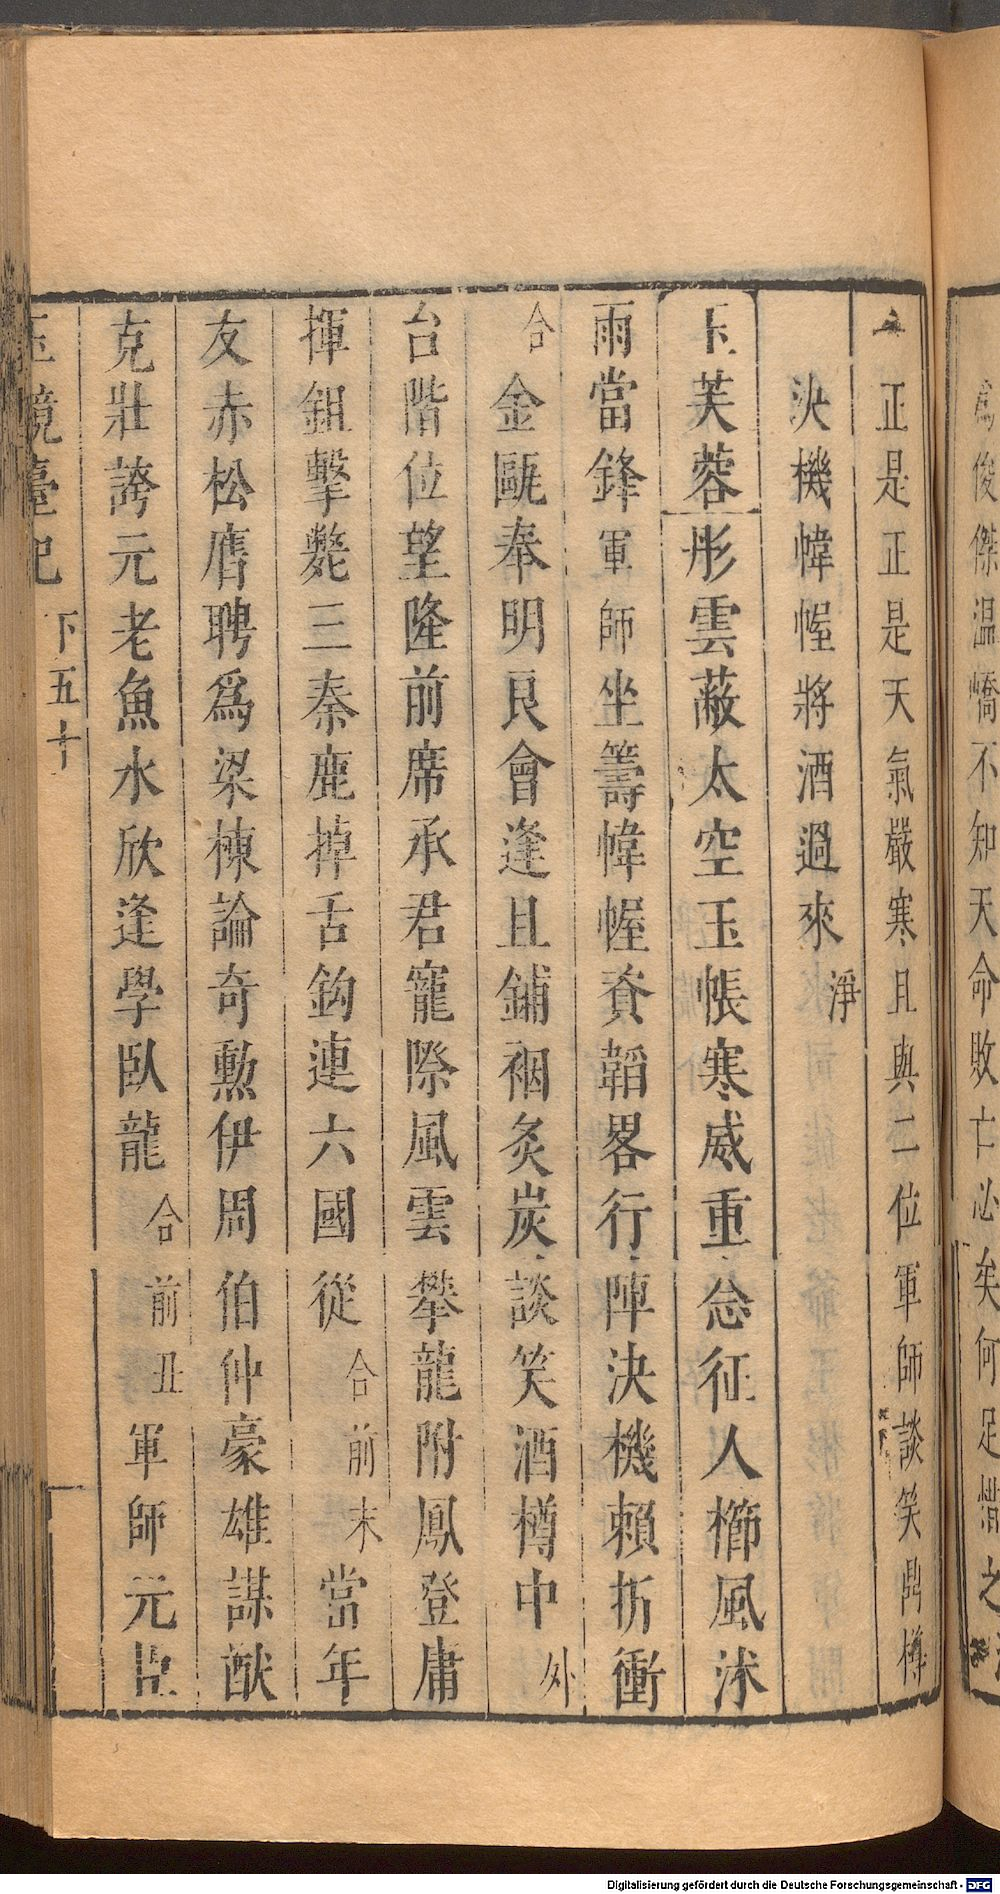 爲俊傑温嶠不知天命敗亡必矣何足惜之
正是正是天氣嚴寒且與二位軍師談笑鼎樽
決機幃幄將酒過來淨
玉芙蓉彤雲蔽太空玉帳寒威重念征人櫛風沐
雨當鋒軍師坐籌幃幄資韜畧行陣決機賴折衝
合金甌奉明良會逢且鋪裀炙炭談笑酒樽中外
台階位望隆前席承君寵際風雲攀龍附鳳登庸
揮鉏擊斃三秦鹿掉舌鈎連六國從合前末當年
友赤松膺聘爲梁棟論奇勲伊周伯仲豪雄謀猷
克壯誇元老魚水欣逢學臥龍合前丑軍師元臣
玉鏡臺記 下五十
Digitalisierung gefördert durch die Deutsche Forschungsgemeinschaft - DFG